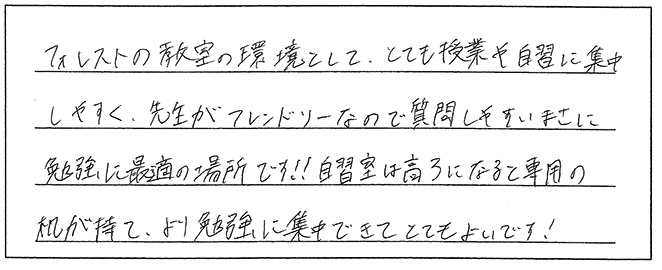 フォレストの教室の環境として、とても授業や自習に集中
しやすく、先生がフレンドリーなので質問しやすいまさに
勉強に最適の場所です!!自習室は高3になると専用の
机が持て、より勉強に集中できてとてもよいです!